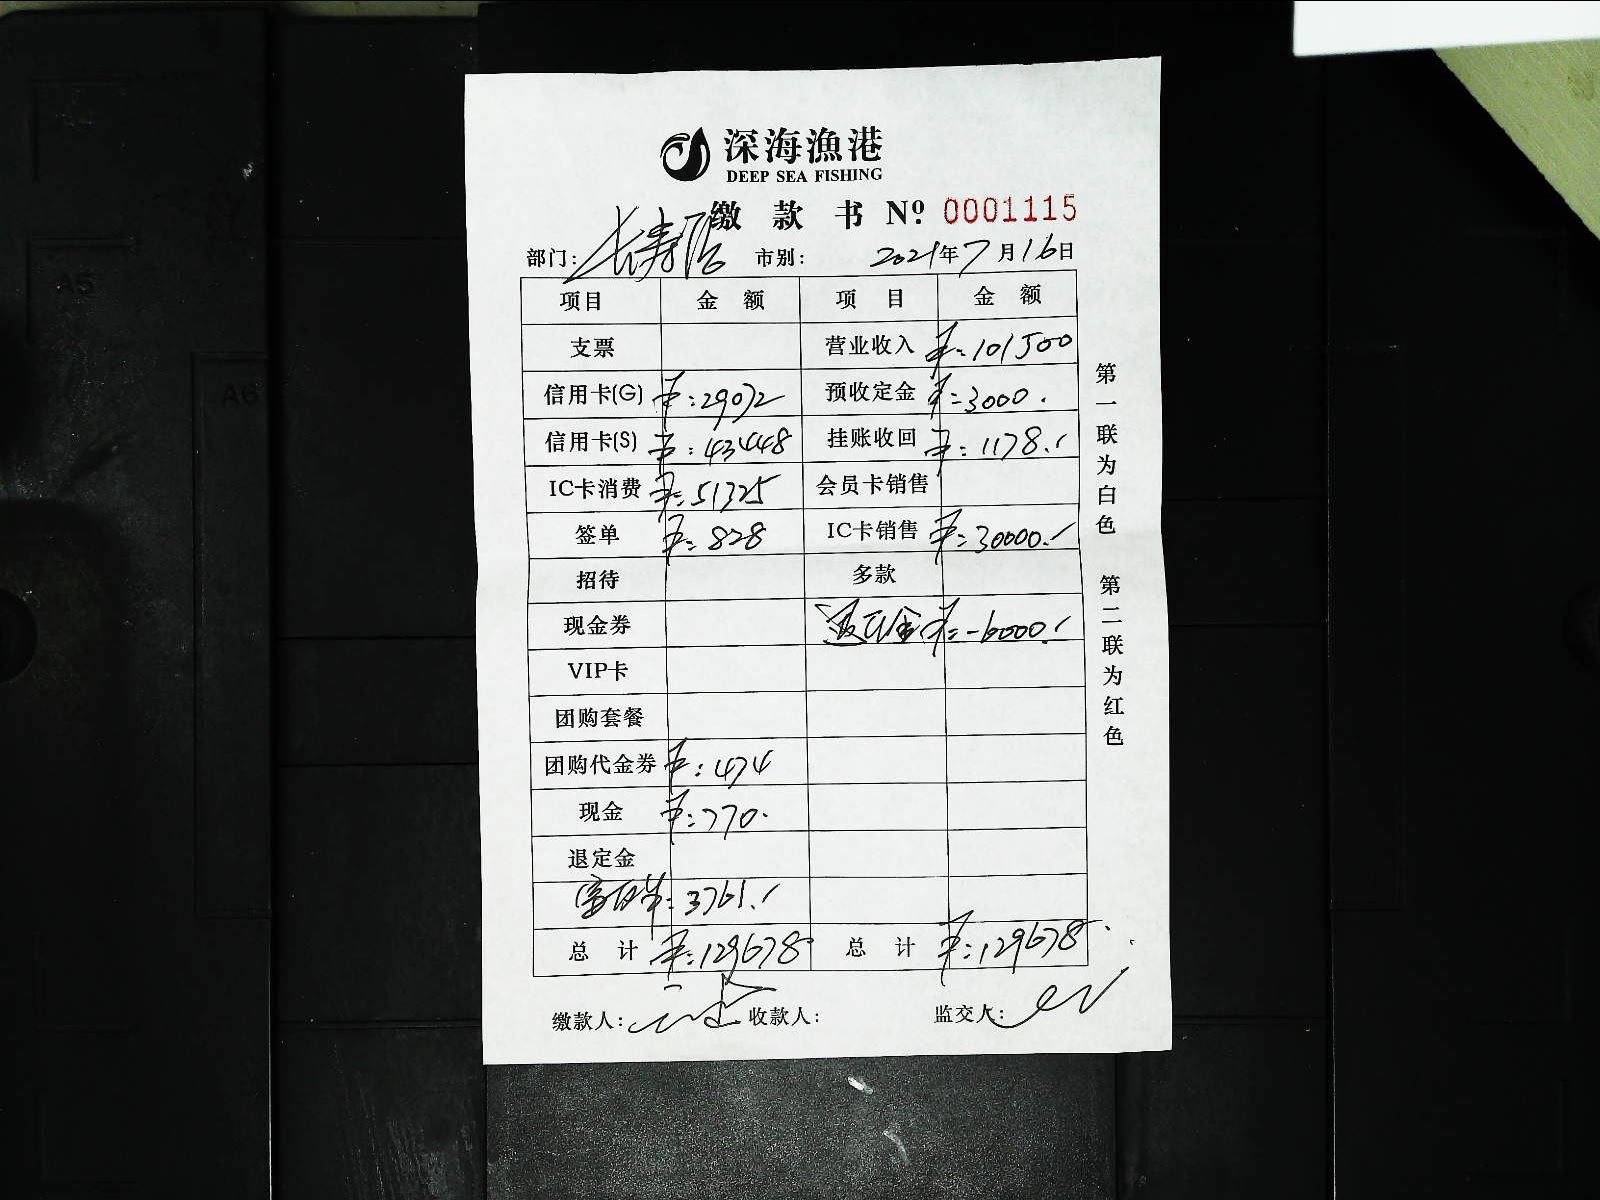 深海漁港
DEEP SEA FISHING
缴款书 Nº 0001115
部门: 长寿店 市别: 2021年7月16日
项目 金额 项目 金额
支票 营业收入 ¥:101500
信用卡(G) ¥:29072 预收定金 ¥:3000.
信用卡(S) ¥:43448 挂账收回 ¥:1178.
IC卡消费 ¥:51325 会员卡销售
签单 ¥:828 IC卡销售 ¥:30000.
招待 多款
现金券 退订金 ¥:-6000.
VIP卡
团购套餐
团购代金券 ¥:474
现金 ¥:770.
退定金
¥:3761.
总计 ¥:129678 总计 ¥:129678.
缴款人: 收款人: 监交人:
第一联为白色 第二联为红色
A5
A6